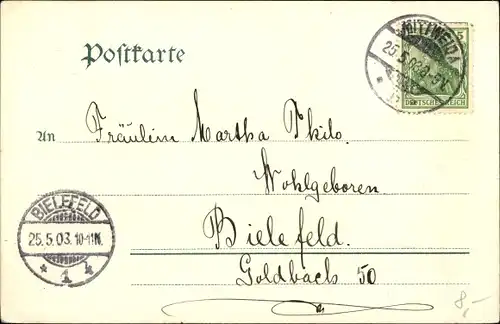 Postkarte
MITTWEIDA
25.5.03. 8-9V.
5
DEUTSCHES REICH
An Fräulein Martha Thilo.
Wohlgeboren
Bielefeld.
Goldbach 50
BIELEFELD
25.5.03.10-11N.
* 1 *
8,-